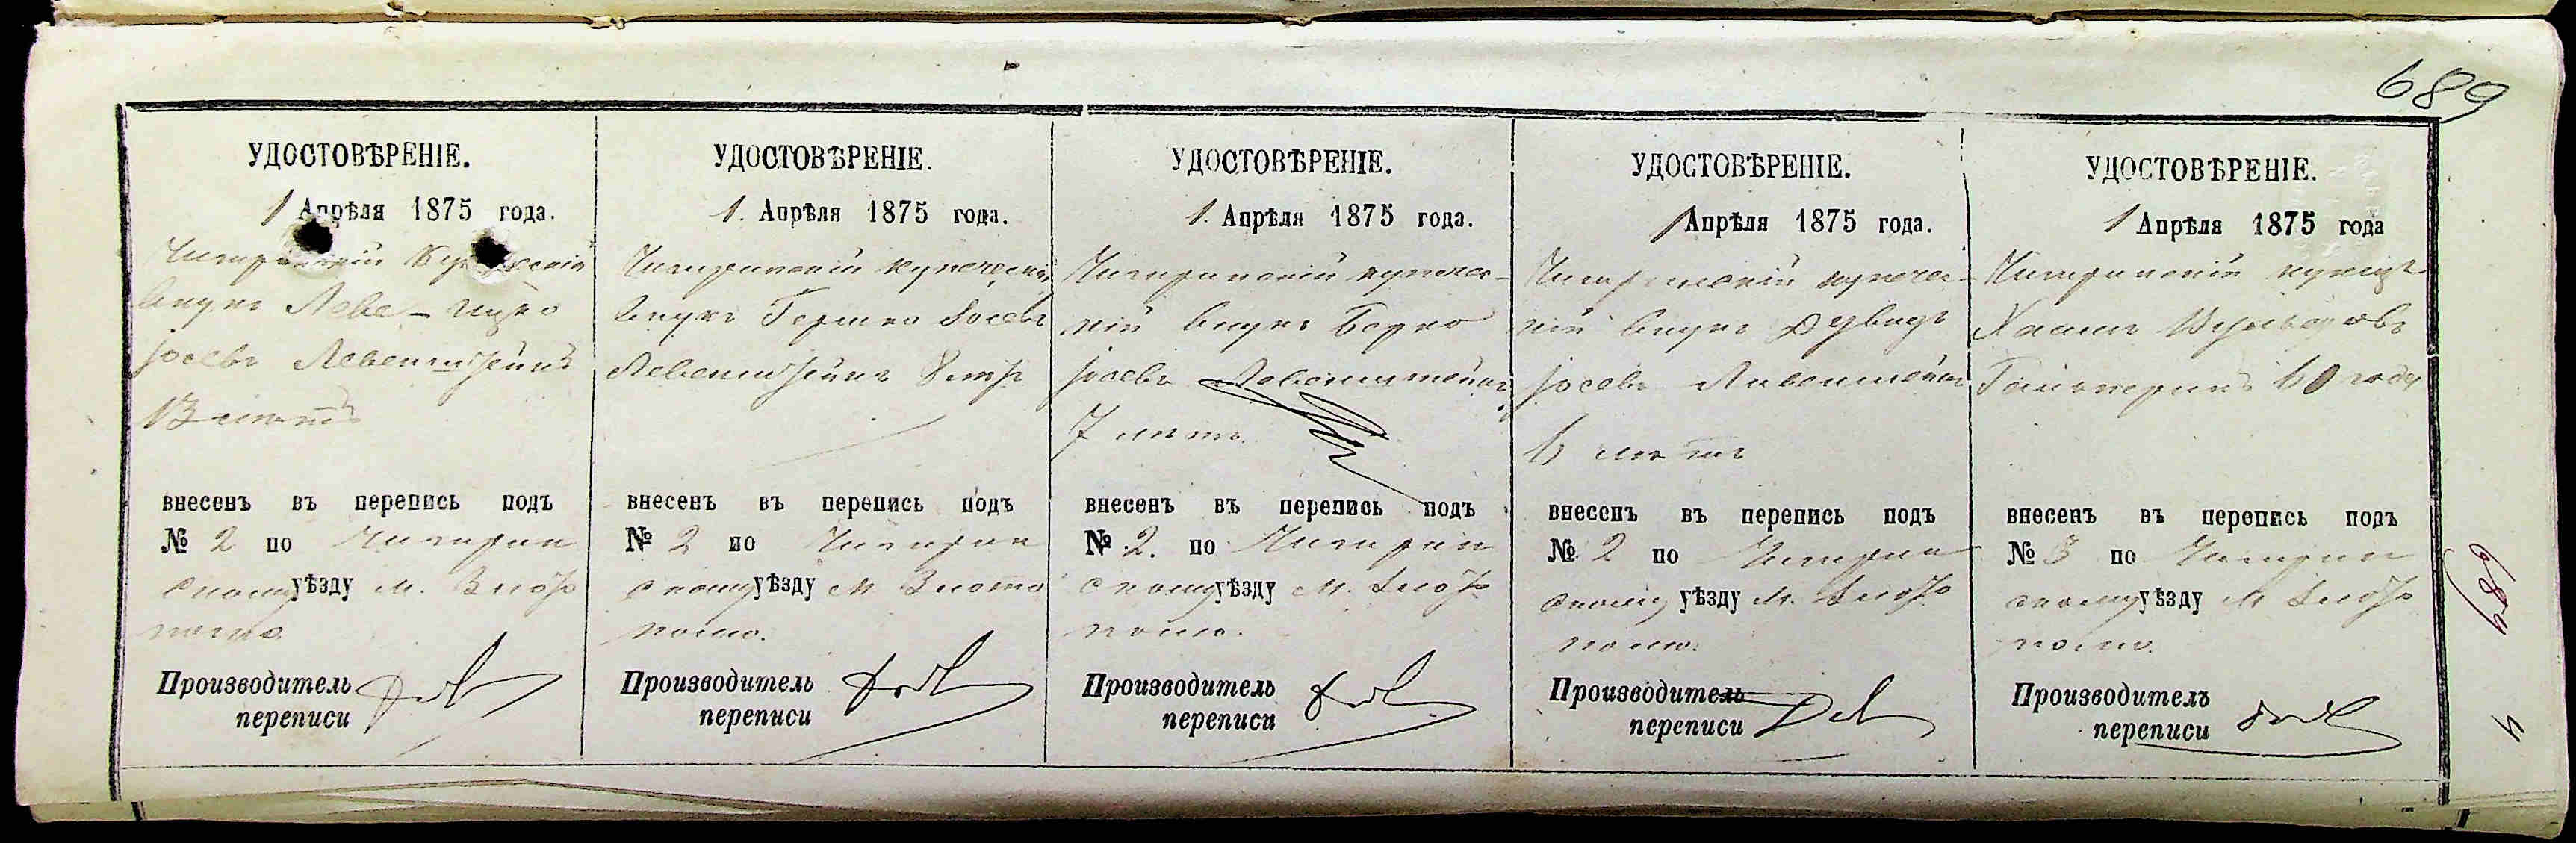 689
УДОСТОВѢРЕНІЕ.
1 Апрѣля 1875 года.
Чигиринскій Купеческій
внукъ Лейб-Ицко
Іосевъ Левенштейнъ
13 лѣтъ
внесенъ въ перепись подъ
№ 2 по Чигирин
скому уѣзду м. Злото
полю.
Производитель
переписи
УДОСТОВѢРЕНІЕ.
1. Апрѣля 1875 года.
Чигиринскій купеческій
внукъ Гершко Іосевъ
Левенштейнъ 8 лѣтъ
внесенъ въ перепись подъ
№ 2 по Чигирин
скому уѣзду м Злото
полю.
Производитель
переписи
УДОСТОВѢРЕНІЕ.
1. Апрѣля 1875 года.
Чигиринскій купечес-
кій внукъ Берко
Іосевъ Левенштейнъ
7 лѣтъ.
внесенъ въ перепись подъ
№ 2. по Чигирин
скому уѣзду м. Злото
полю.
Производитель
переписи
УДОСТОВѢРЕНІЕ.
1 Апрѣля 1875 года.
Чигиринскій купечес-
кій внукъ Дувидъ
Іосевъ Левенштейнъ
6 лѣтъ
внесенъ въ перепись подъ
№ 2 по Чигирин
скому уѣзду м. Злото
полю.
Производитель
переписи
УДОСТОВѢРЕНІЕ.
1 Апрѣля 1875 года
Чигиринскій купецъ
Хаимъ
Гальперинъ 60 годъ
внесенъ въ перепись подъ
№ 3 по Чигирин
скому уѣзду м Злото
полю.
Производитель
переписи
689